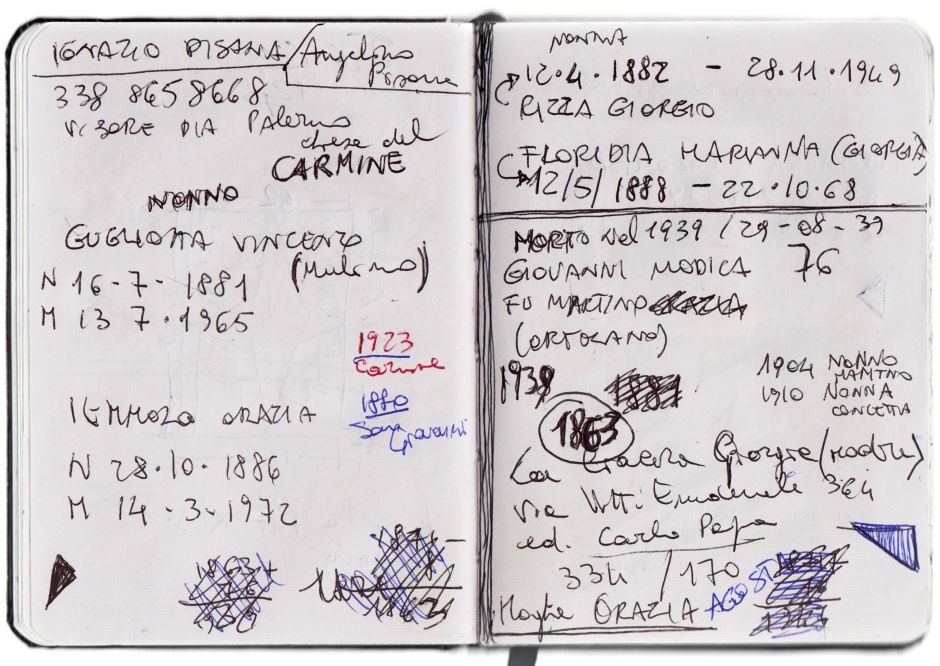 IGNAZIO PISANA / Angelino
Pisana
338 8658668
VISORE DIA Palermo
chiesa del
CARMINE
NONNO
GUGLIOTTA VINCENZO
(Mulermo)
N 16-7-1881
M 13 7.1965
1923
Carmine
1880
San Giovanni
IEMMOLO ORAZIA
N 28.10.1886
M 14-3-1972
NONNA
12.4.1882 - 28.11.1949
RIZZA GIORGIO
FLORIDIA MARIANNA (GIORGIA)
12/5/1888 - 22.10.68
MORTO nel 1939 / 29-08-39
GIOVANNI MODICA 76
FU MARTINO
(ORTOLANO)
1939
1904 NONNO
MARTINO
1910 NONNA
CONCETTA
1863
Giorgia (madre)
via Vitt. Emanuele 364
ed. Carlo Papa
334/170
Moglie ORAZIA